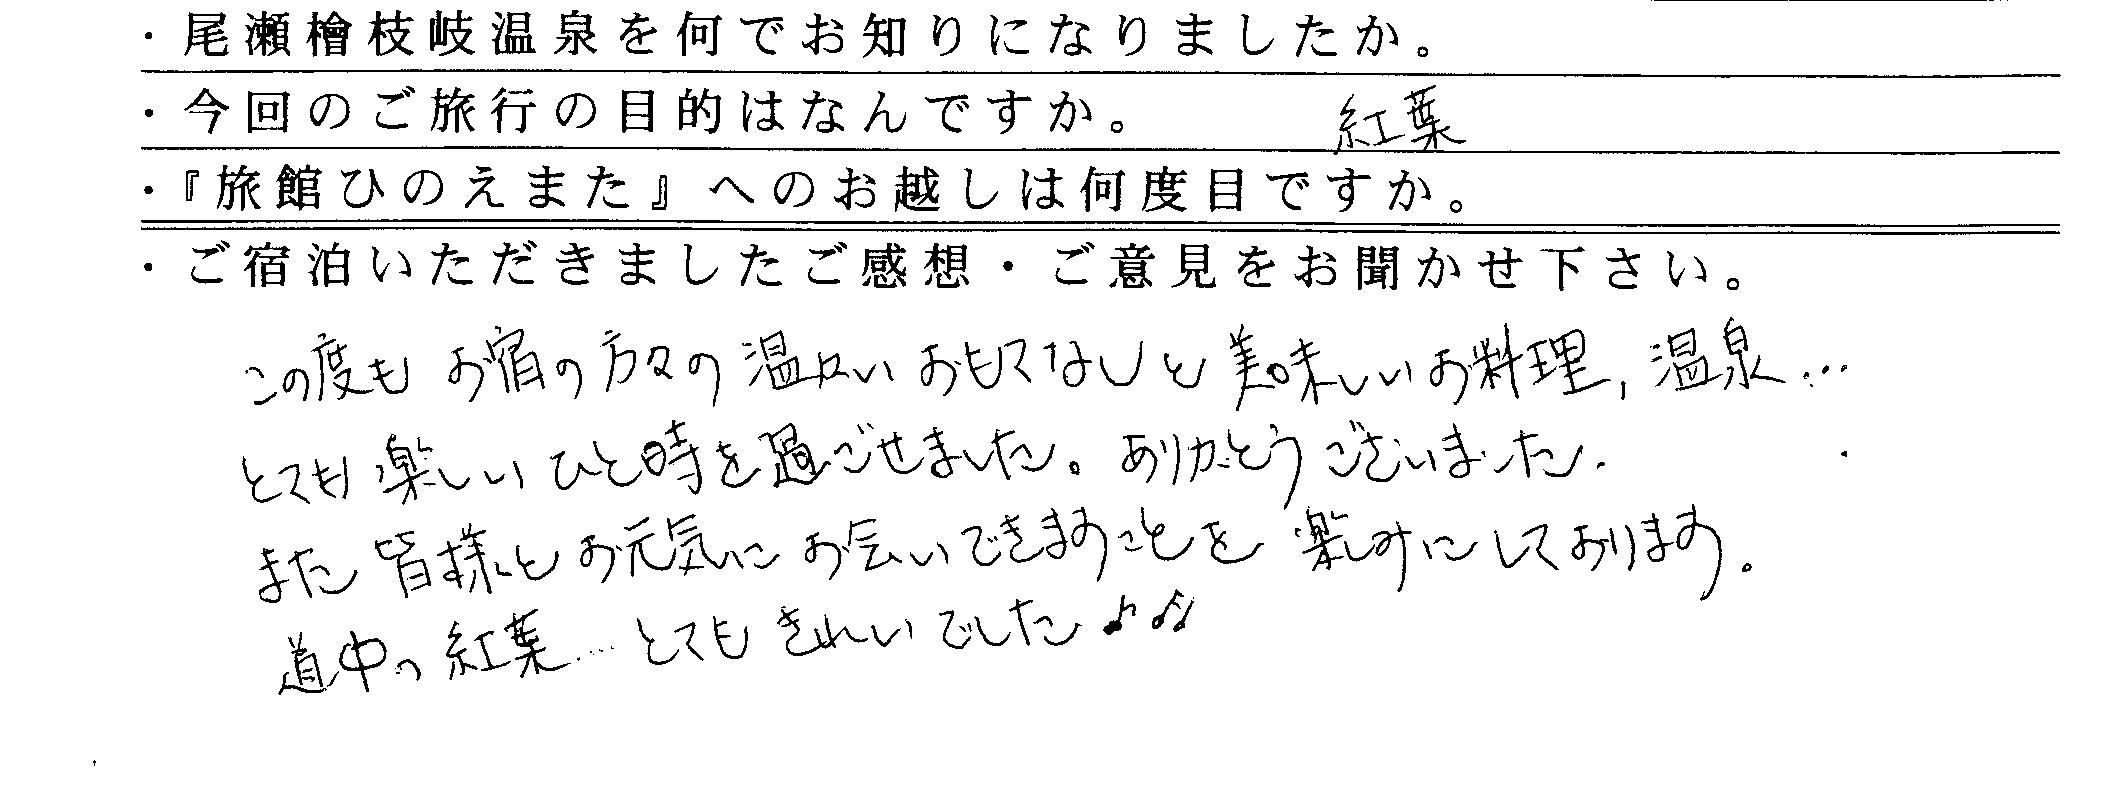 ・尾瀬檜枝岐温泉を何でお知りになりましたか。
・今回のご旅行の目的はなんですか。 紅葉
・『旅館ひのえまた』へのお越しは何度目ですか。
・ご宿泊いただきましたご感想・ご意見をお聞かせ下さい。
この度も お宿の方々の 温かい おもてなしと 美味しいお料理, 温泉…
とても 楽しい ひと時を 過ごせました。ありがとう ございました.
また 皆様と お元気に お会いできますことを 楽しみに しております。
道中の 紅葉… とても きれいでした♪♫